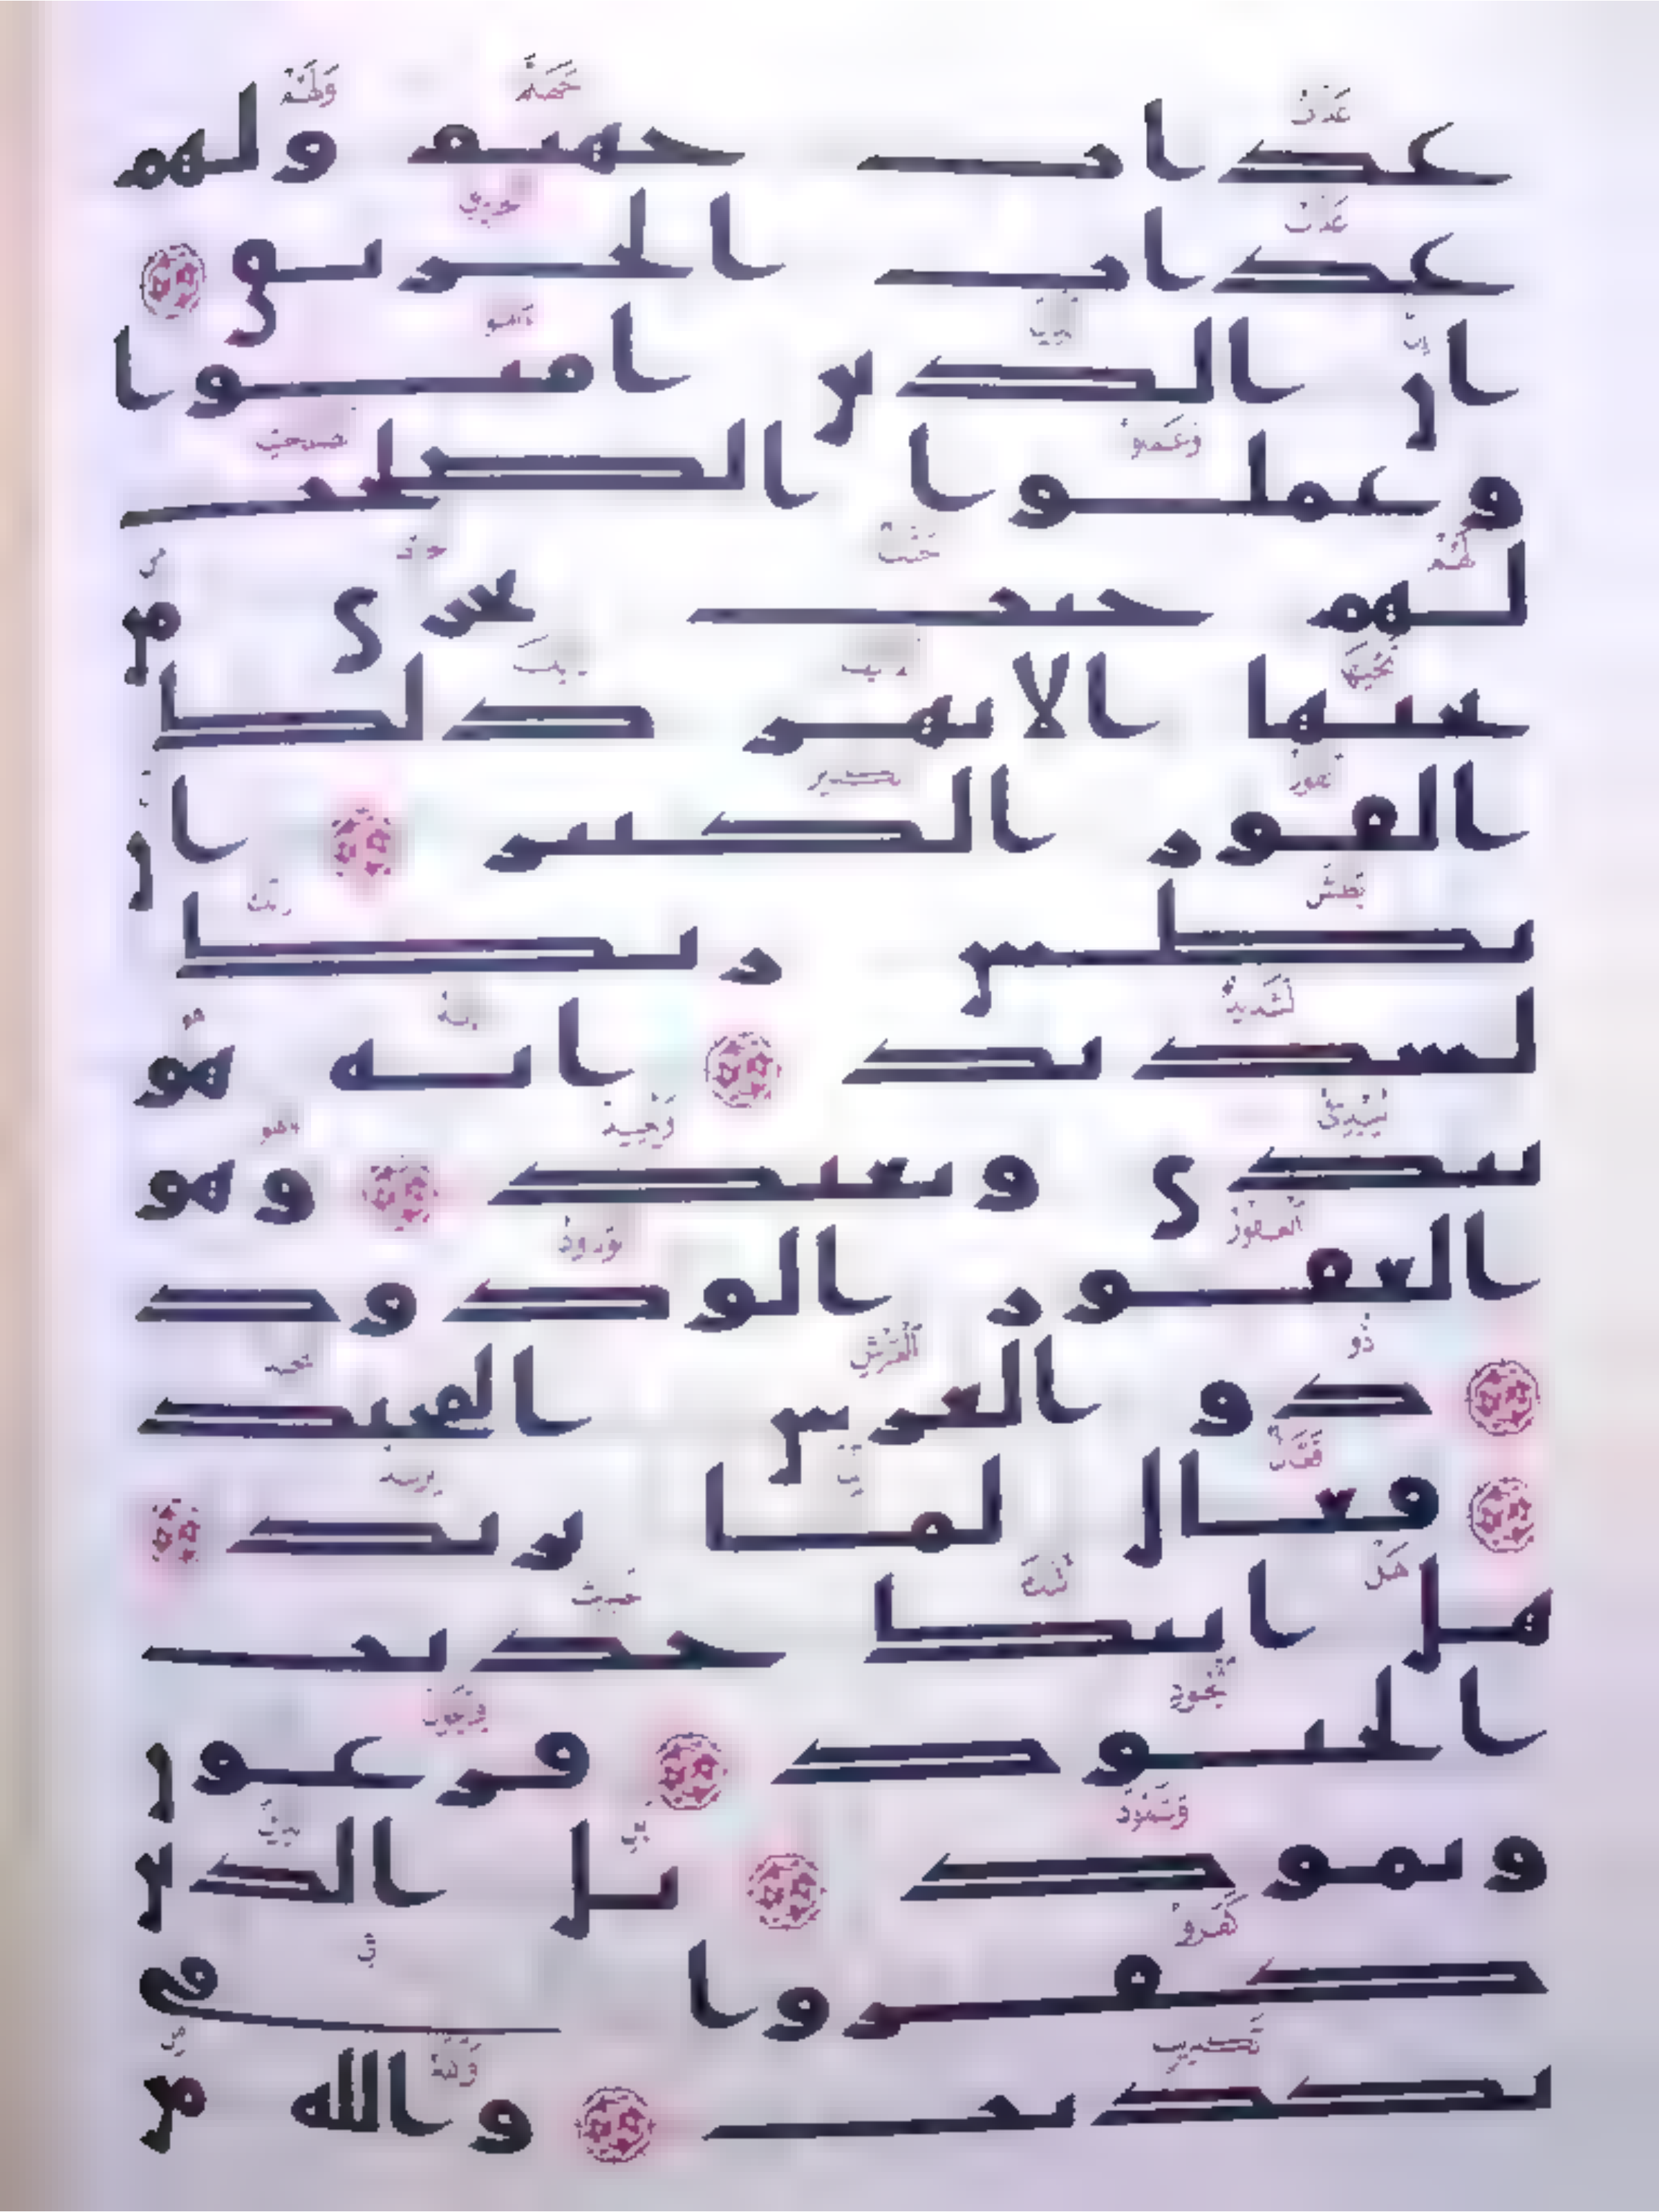 عذاب جهنم ولهم
عذاب الحريق
ان الذين امنوا
وعملوا الصلحت
لهم جنت تجري من
تحتها الانهر ذلك
الفوز الكبير ان
بطش ربك
لشديد انه هو
يبدي ويعيد وهو
الغفور الودود
ذو العرش المجيد
فعال لما يريد
هل اتيك حديث
الجنود فرعون
وثمود بل الذين
كفروا في
تكذيب والله من